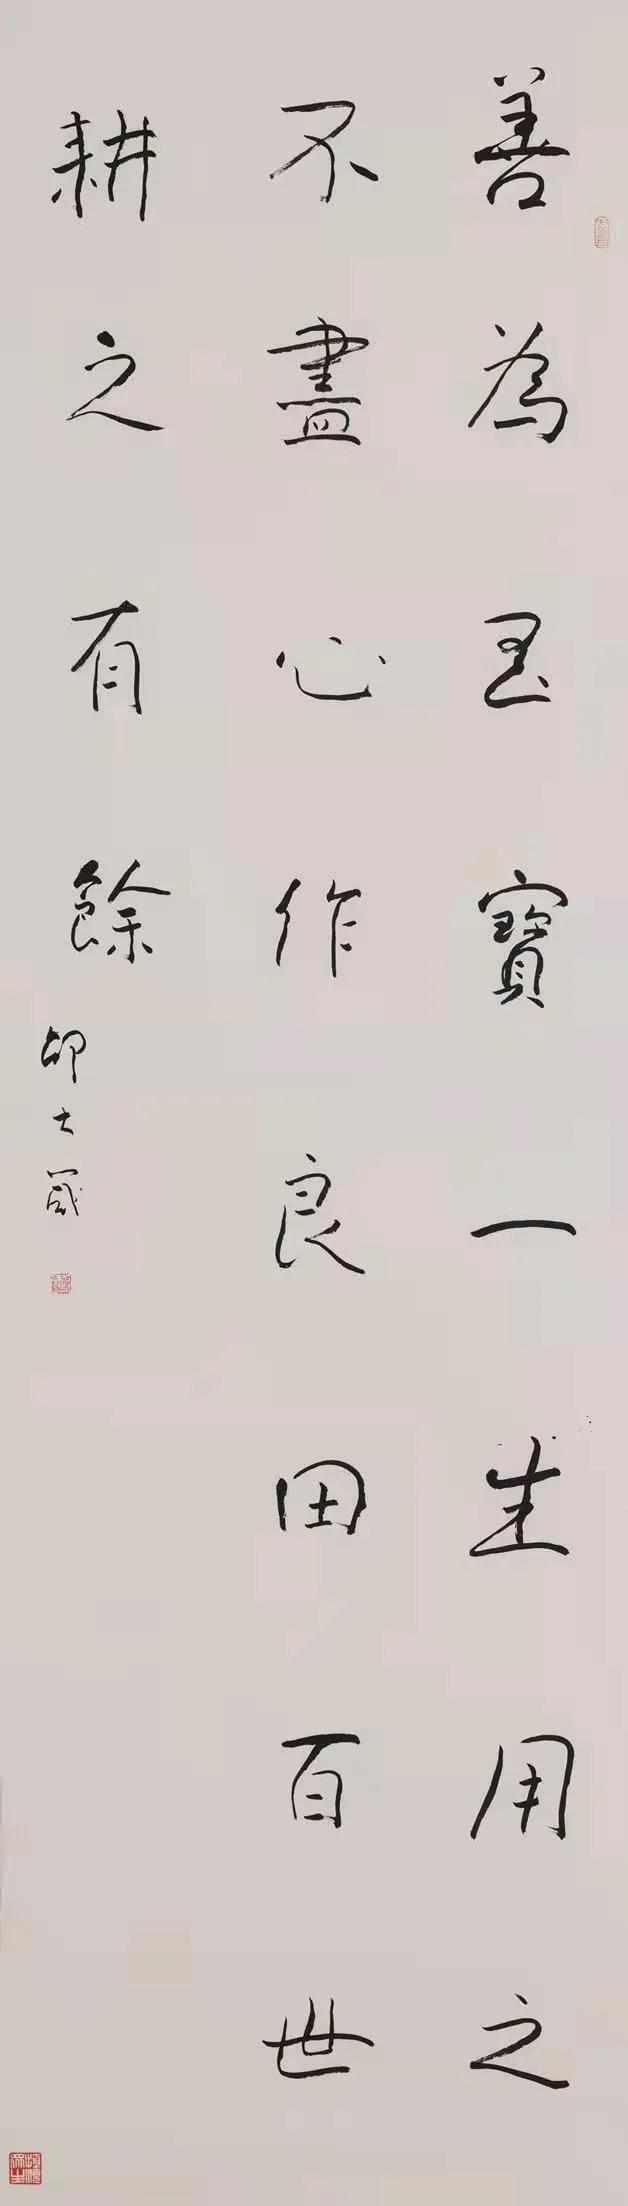 善為至寶一生用之
不盡心作良田百世
耕之有餘